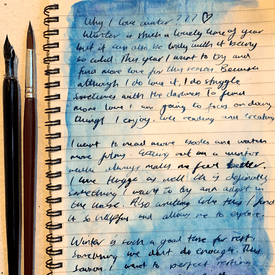 Why I love winter ??? ♡
Winter is such a lovely time of year
but it can also be lonely with it being
so cold. This year I want to try and
find more love for this season. Because
although I do love it, I do struggle
sometimes with the darkness. To find
more love I am going to focus on doing
things I enjoy, like reading and creating
I want to read more books and watch
more films. Getting out on a winter
walk always makes me feel better.
I love Hygge as well. It is definitely
something I want to try and adopt in
the house. Also writing like this I find
it so helpful and allows me to explore.
Winter is such a good time for rest,
something we don't do enough. This
season I want to perfect